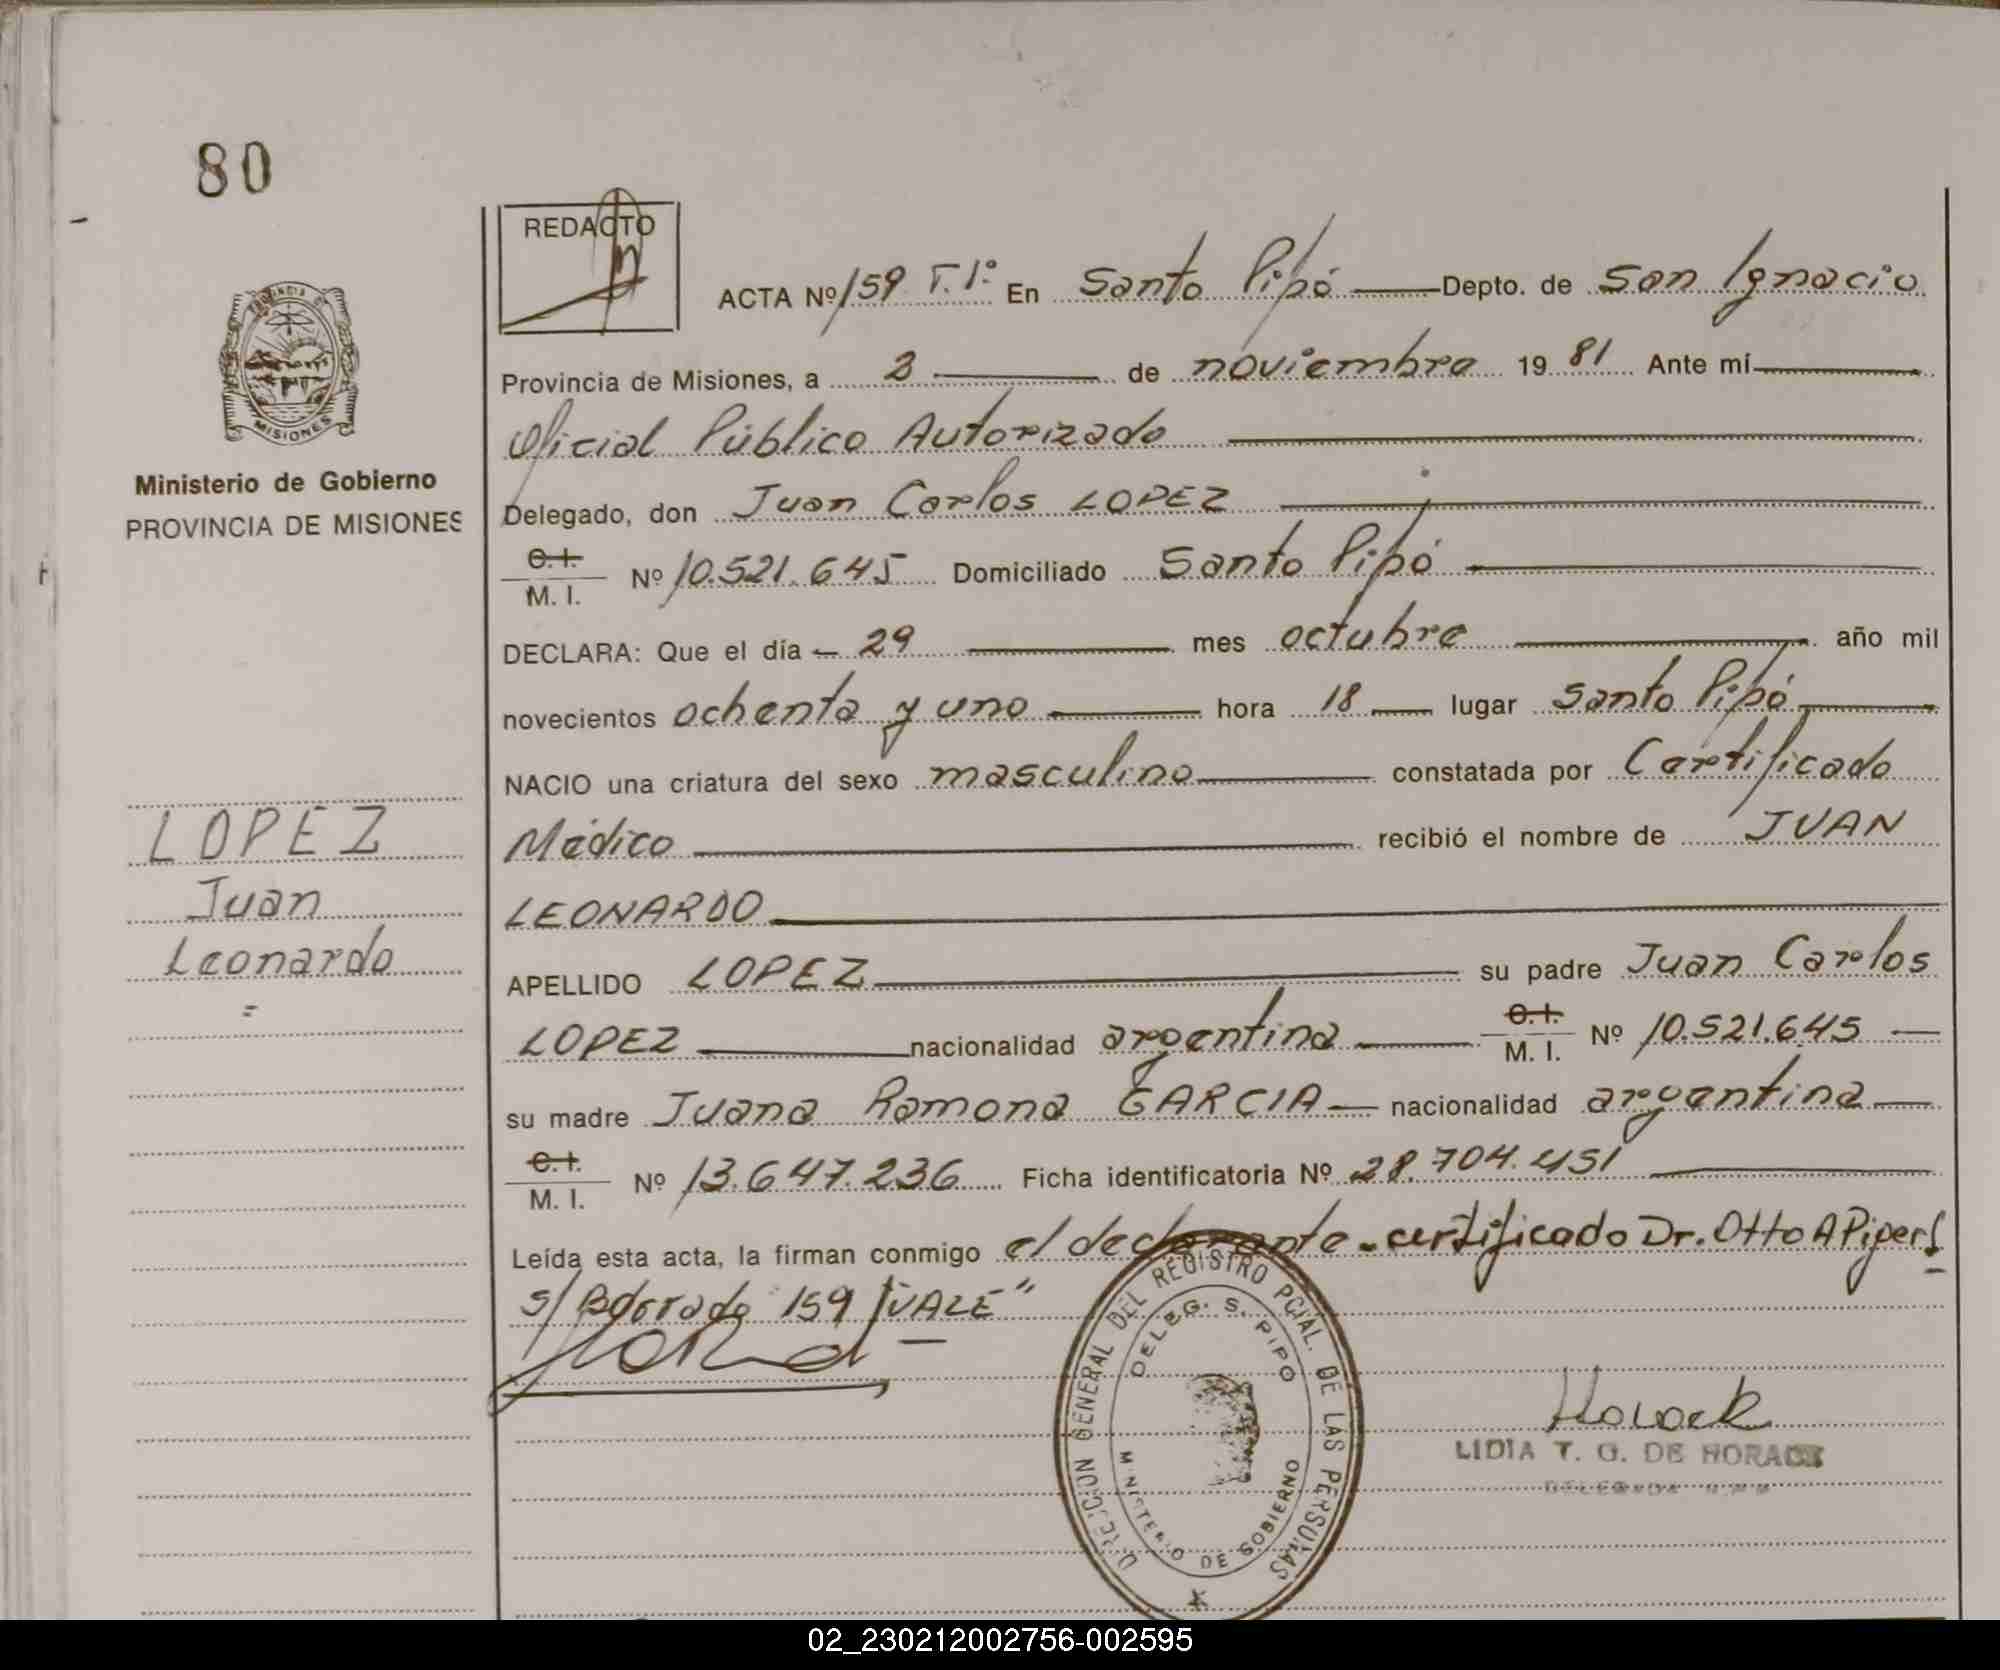 80
REDACTO
ACTA Nº 159 T.1º En Santo Pipó Depto. de San Ignacio
PROVINCIA DE MISIONES
Provincia de Misiones, a 3 de noviembre 19 81 Ante mí
Oficial Público Autorizado
Ministerio de Gobierno
PROVINCIA DE MISIONES
Delegado, don Juan Carlos LOPEZ
C.I. M. I. Nº 10.521.645 Domiciliado Santo Pipó
DECLARA: Que el día 29 mes octubre año mil
novecientos ochenta y uno hora 18 lugar Santo Pipó
NACIO una criatura del sexo masculino constatada por Certificado
Médico recibió el nombre de JUAN
LEONARDO
LOPEZ
Juan
Leonardo
APELLIDO LOPEZ su padre Juan Carlos
LOPEZ nacionalidad argentina C.I. M. I. Nº 10.521.645
su madre Juana Ramona GARCIA nacionalidad argentina
C.I. M. I. Nº 13.647.236 Ficha identificatoria Nº 28.704.451
Leída esta acta, la firman conmigo el declarante - certificado Dr. Otto A Piper
s/ Borrado 159 "VALE"
DIRECCION GENERAL DEL REGISTRO PCIAL. DE LAS PERSONAS
DELEG. S. PIPO
MINISTERIO DE GOBIERNO
LIDIA T. G. DE HORACK
02_230212002756-002595